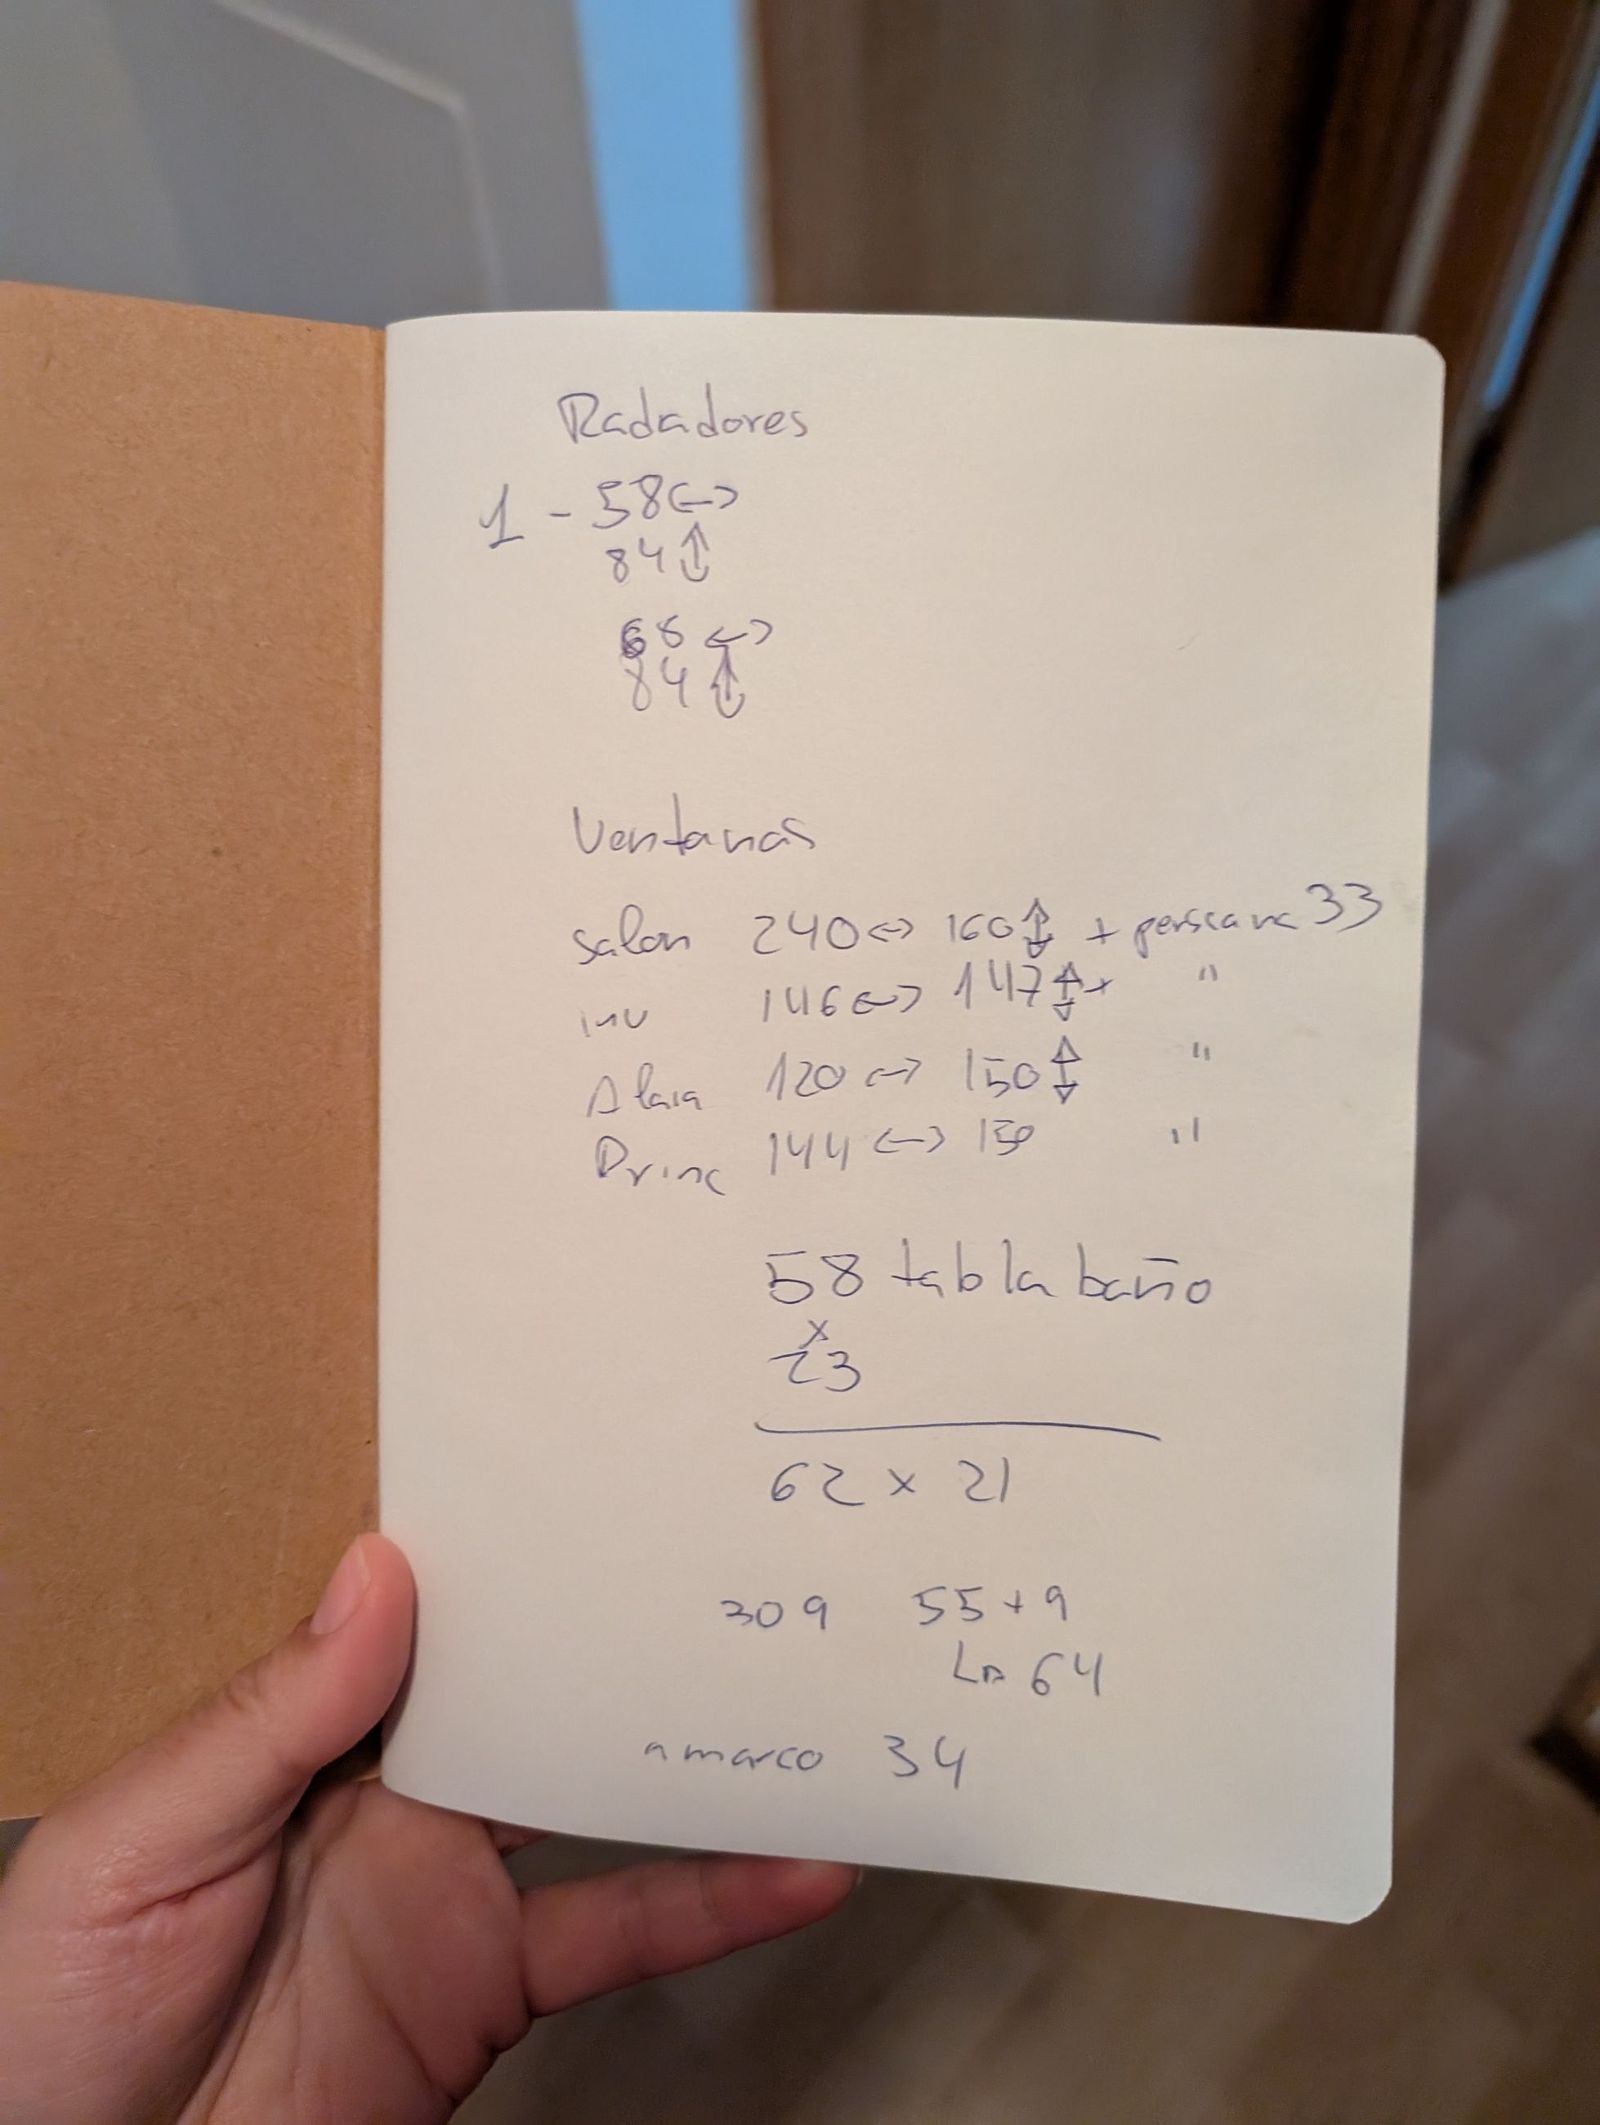 Radadores
1 - 58 ↔
84 ↕
68 ↔
84 ↕
Ventanas
salon 240 ↔ 160 ↕ + persiana 33
inv 146 ↔ 147 ↕ + "
Alaia 120 ↔ 150 ↕ "
Princ 144 ↔ 150 "
58 tabla baño
x
23
62 x 21
309 55 + 9
↳ 64
a marco 34